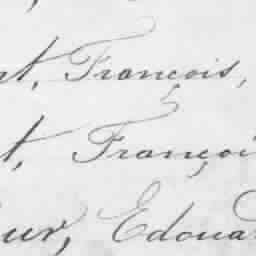 rt, François,
t, Françoi
eur, Edoua